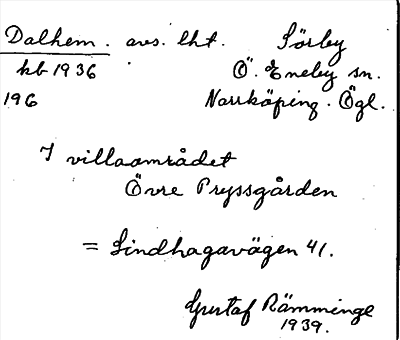 Dalhem. avs. lht. Sörby
kb 1936 Ö. Eneby sn.
196 Norrköping. Ögl.
I villaområdet
Övre Pryssgården
= Lindhagavägen 41.
Gustaf Rämminge
1939.